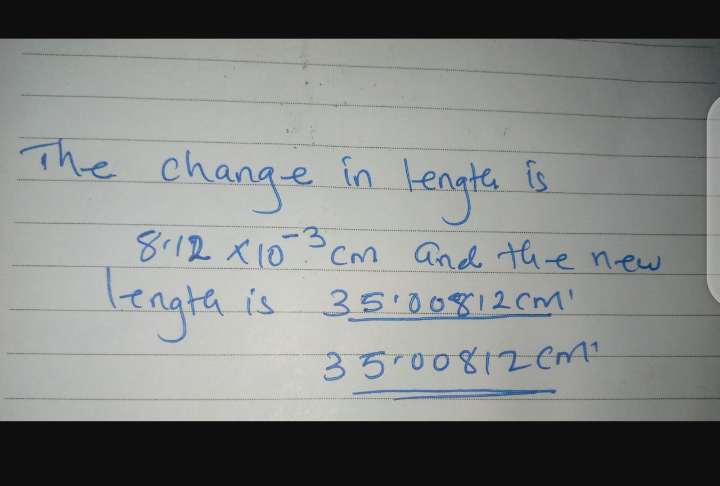 The change in length is
8·12 × 10⁻³ cm and the new
length is 35·00812 cm'
35·00812 cm'